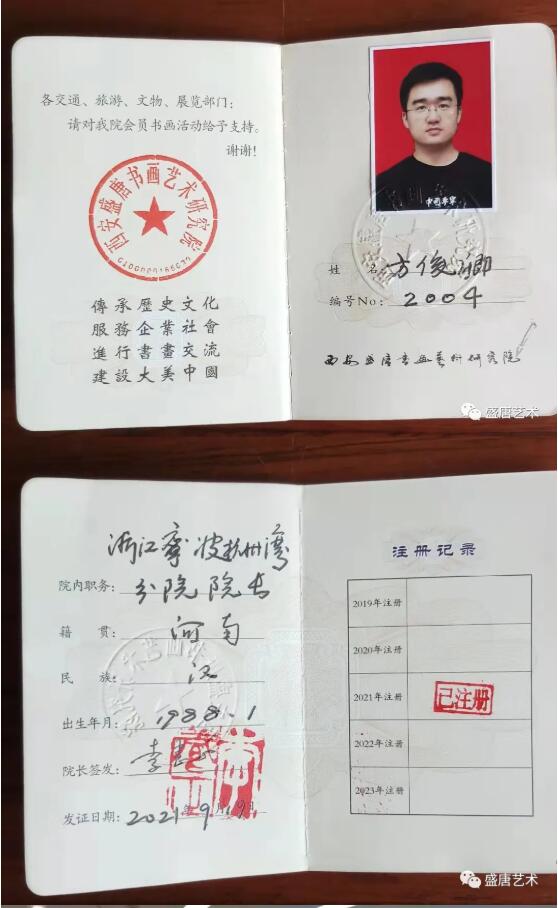 各交通、旅游、文物、展览部门:
请对我院会员书画活动给予支持。
谢谢!
西安盛唐书画艺术研究院
傳承歷史文化
服務企業社會
進行書畫交流
建設大美中國
中国李宁
姓 名 方俊卿
编号No: 2004
西安盛唐书画艺术研究院
盛唐艺术
浙江寧波杭州湾
院内职务: 分院院长
籍 贯: 河南
民 族: 汉
出生年月: 1988.1
院长签发: 李
发证日期: 2021年9月19日
注册记录
2019年注册
2020年注册
2021年注册 已注册
2022年注册
2023年注册
盛唐艺术